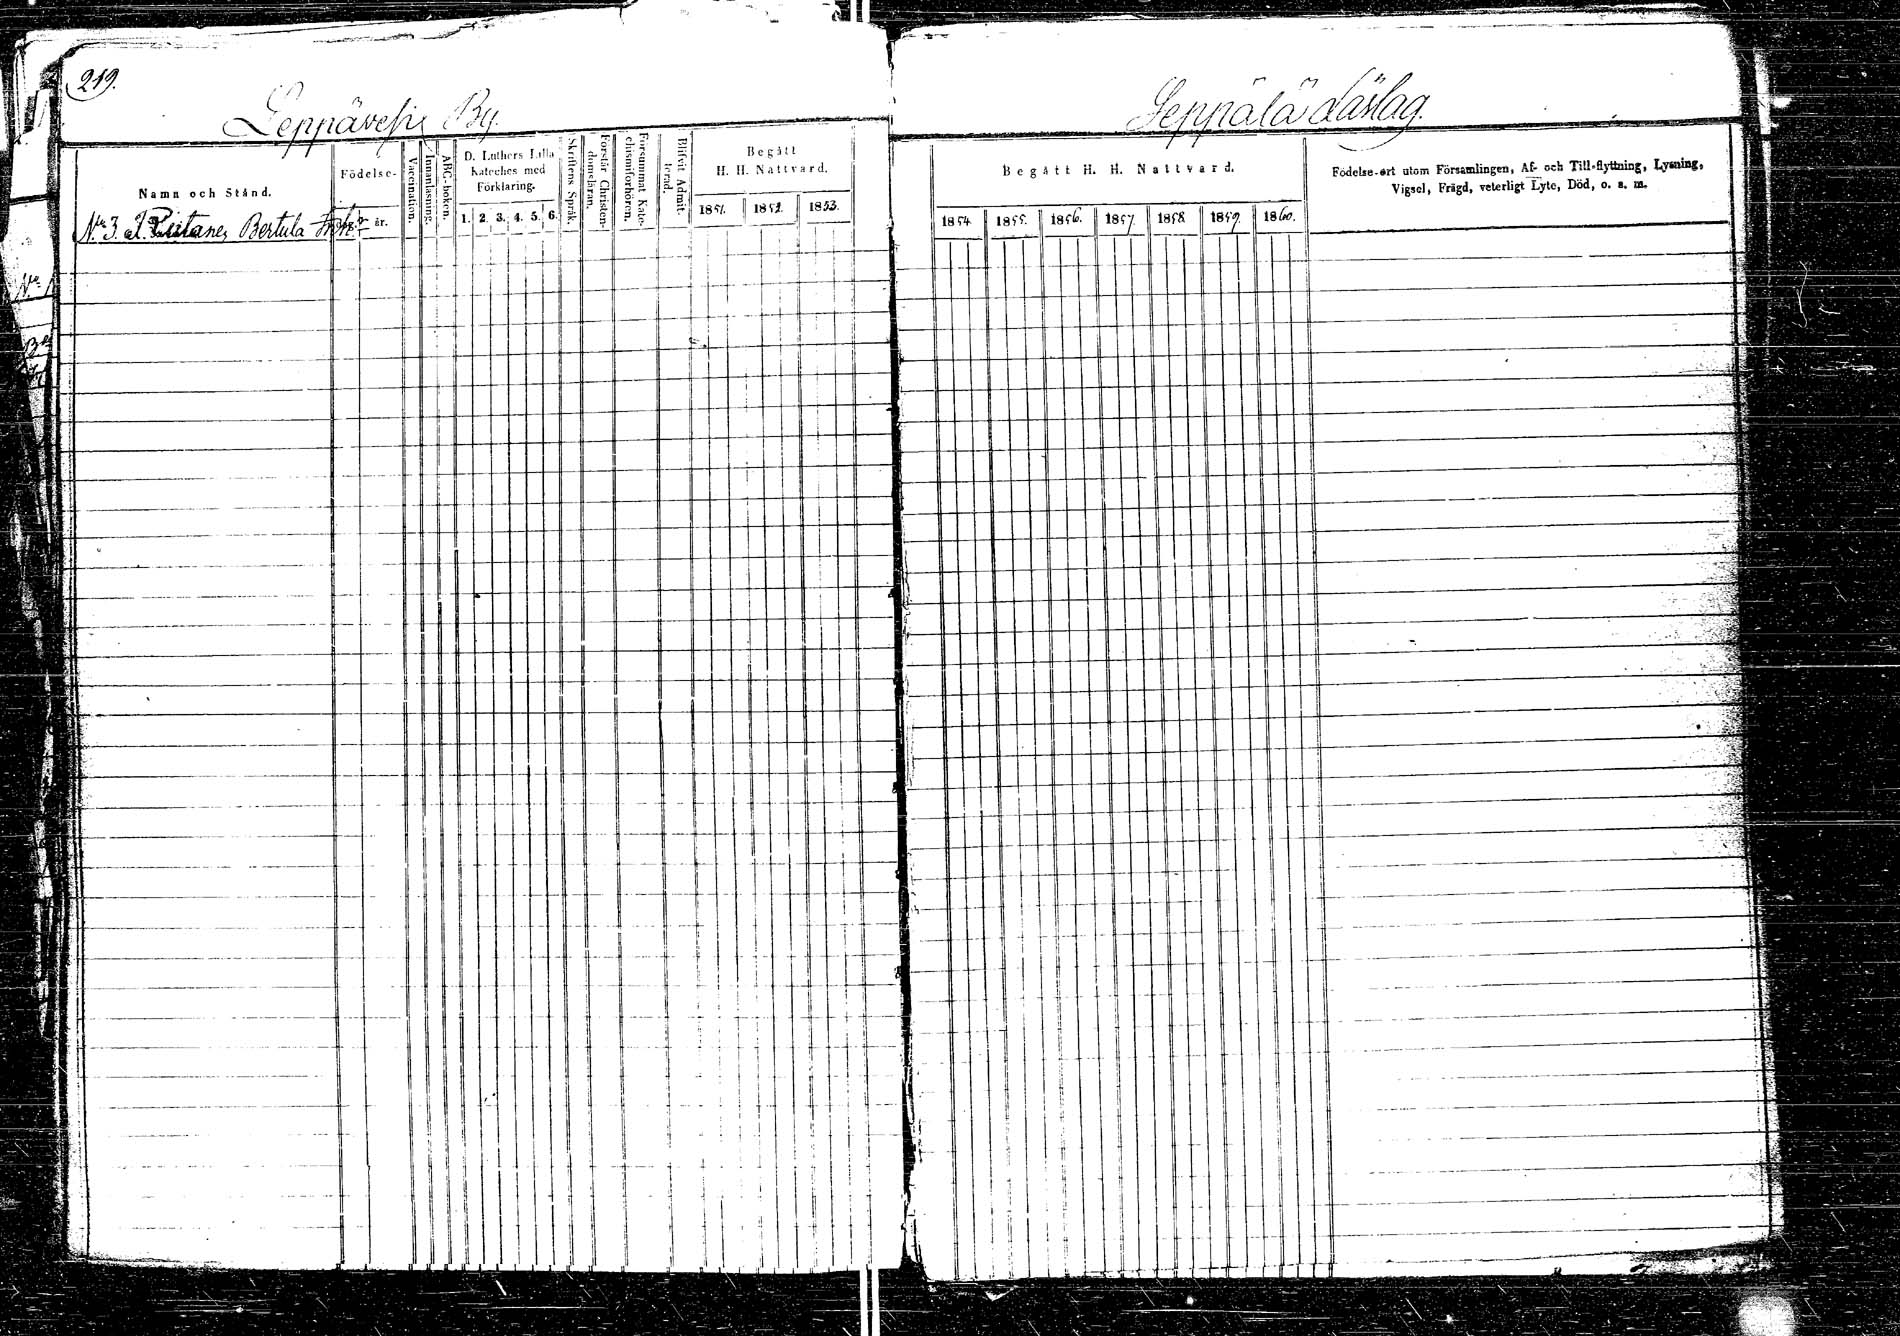 219.
Leppävesi By.
Namn och Stånd.
Födelse-
år.
Vaccination.
Innanläsning.
ABC-boken.
D. Luthers Lilla
Kateches med
Förklaring.
1. 2. 3. 4. 5. 6.
Skriftens Språk.
Förstår Christen-
domsläran.
Försummat Kate-
chismiförhören.
Blifvit Admit-
terad.
Begått
H. H. Nattvard.
1851. 1852. 1853.
No 3. Bertula
Seppälä
Begått H. H. Nattvard.
1854 1855. 1856. 1857. 1858 1859. 1860.
Födelse-ort utom Församlingen, Af- och Till-flyttning, Lysning,
Vigsel, Frägd, veterligt Lyte, Död, o. s. m.